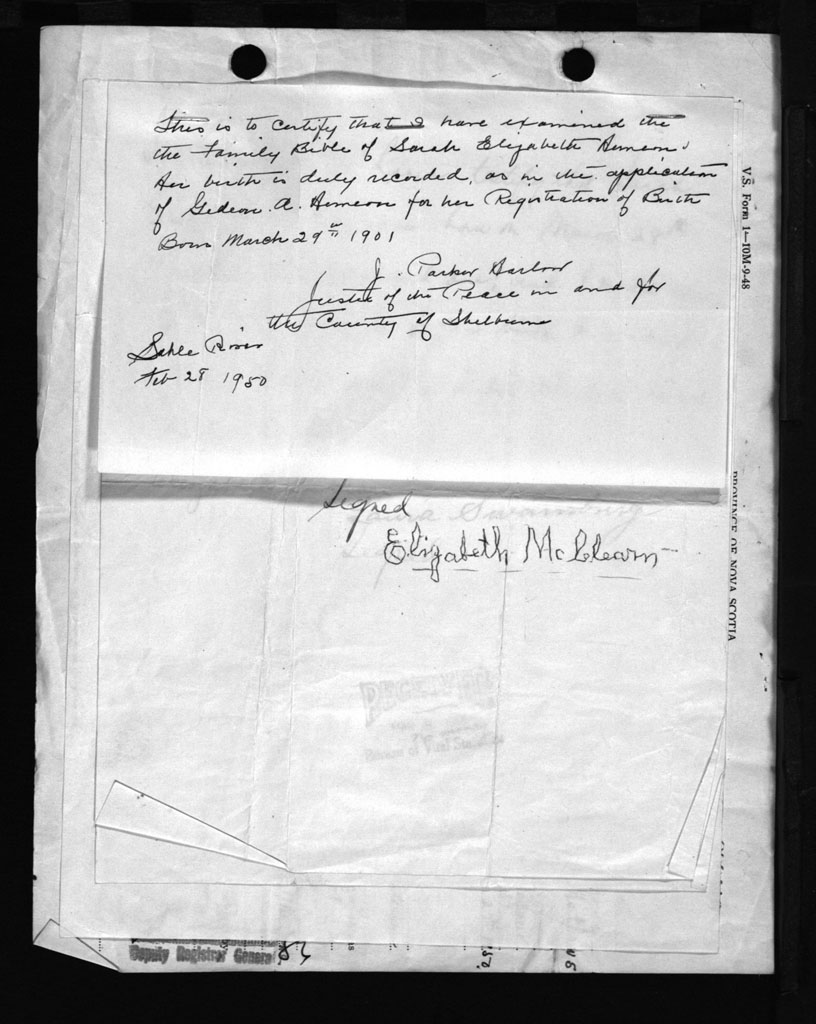 This is to certify that I have examined the
the Family Bible of Sarah Elizabeth Hemeon.
Her birth is duly recorded, as in the application
of Gideon. A. Hemeon for her Registration of Birth
Born March 29th 1901
J. Parker Harlow
Justice of the Peace in and for
the County of Shelburne
Sable River
Feb 28 1950
Signed
Elizabeth McClearn
V.S. Form 1—10M-9-48
PROVINCE OF NOVA SCOTIA
Deputy Registrar General